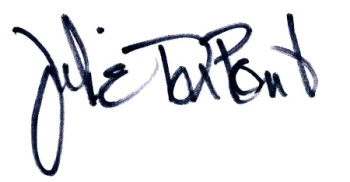 Julie DuPont